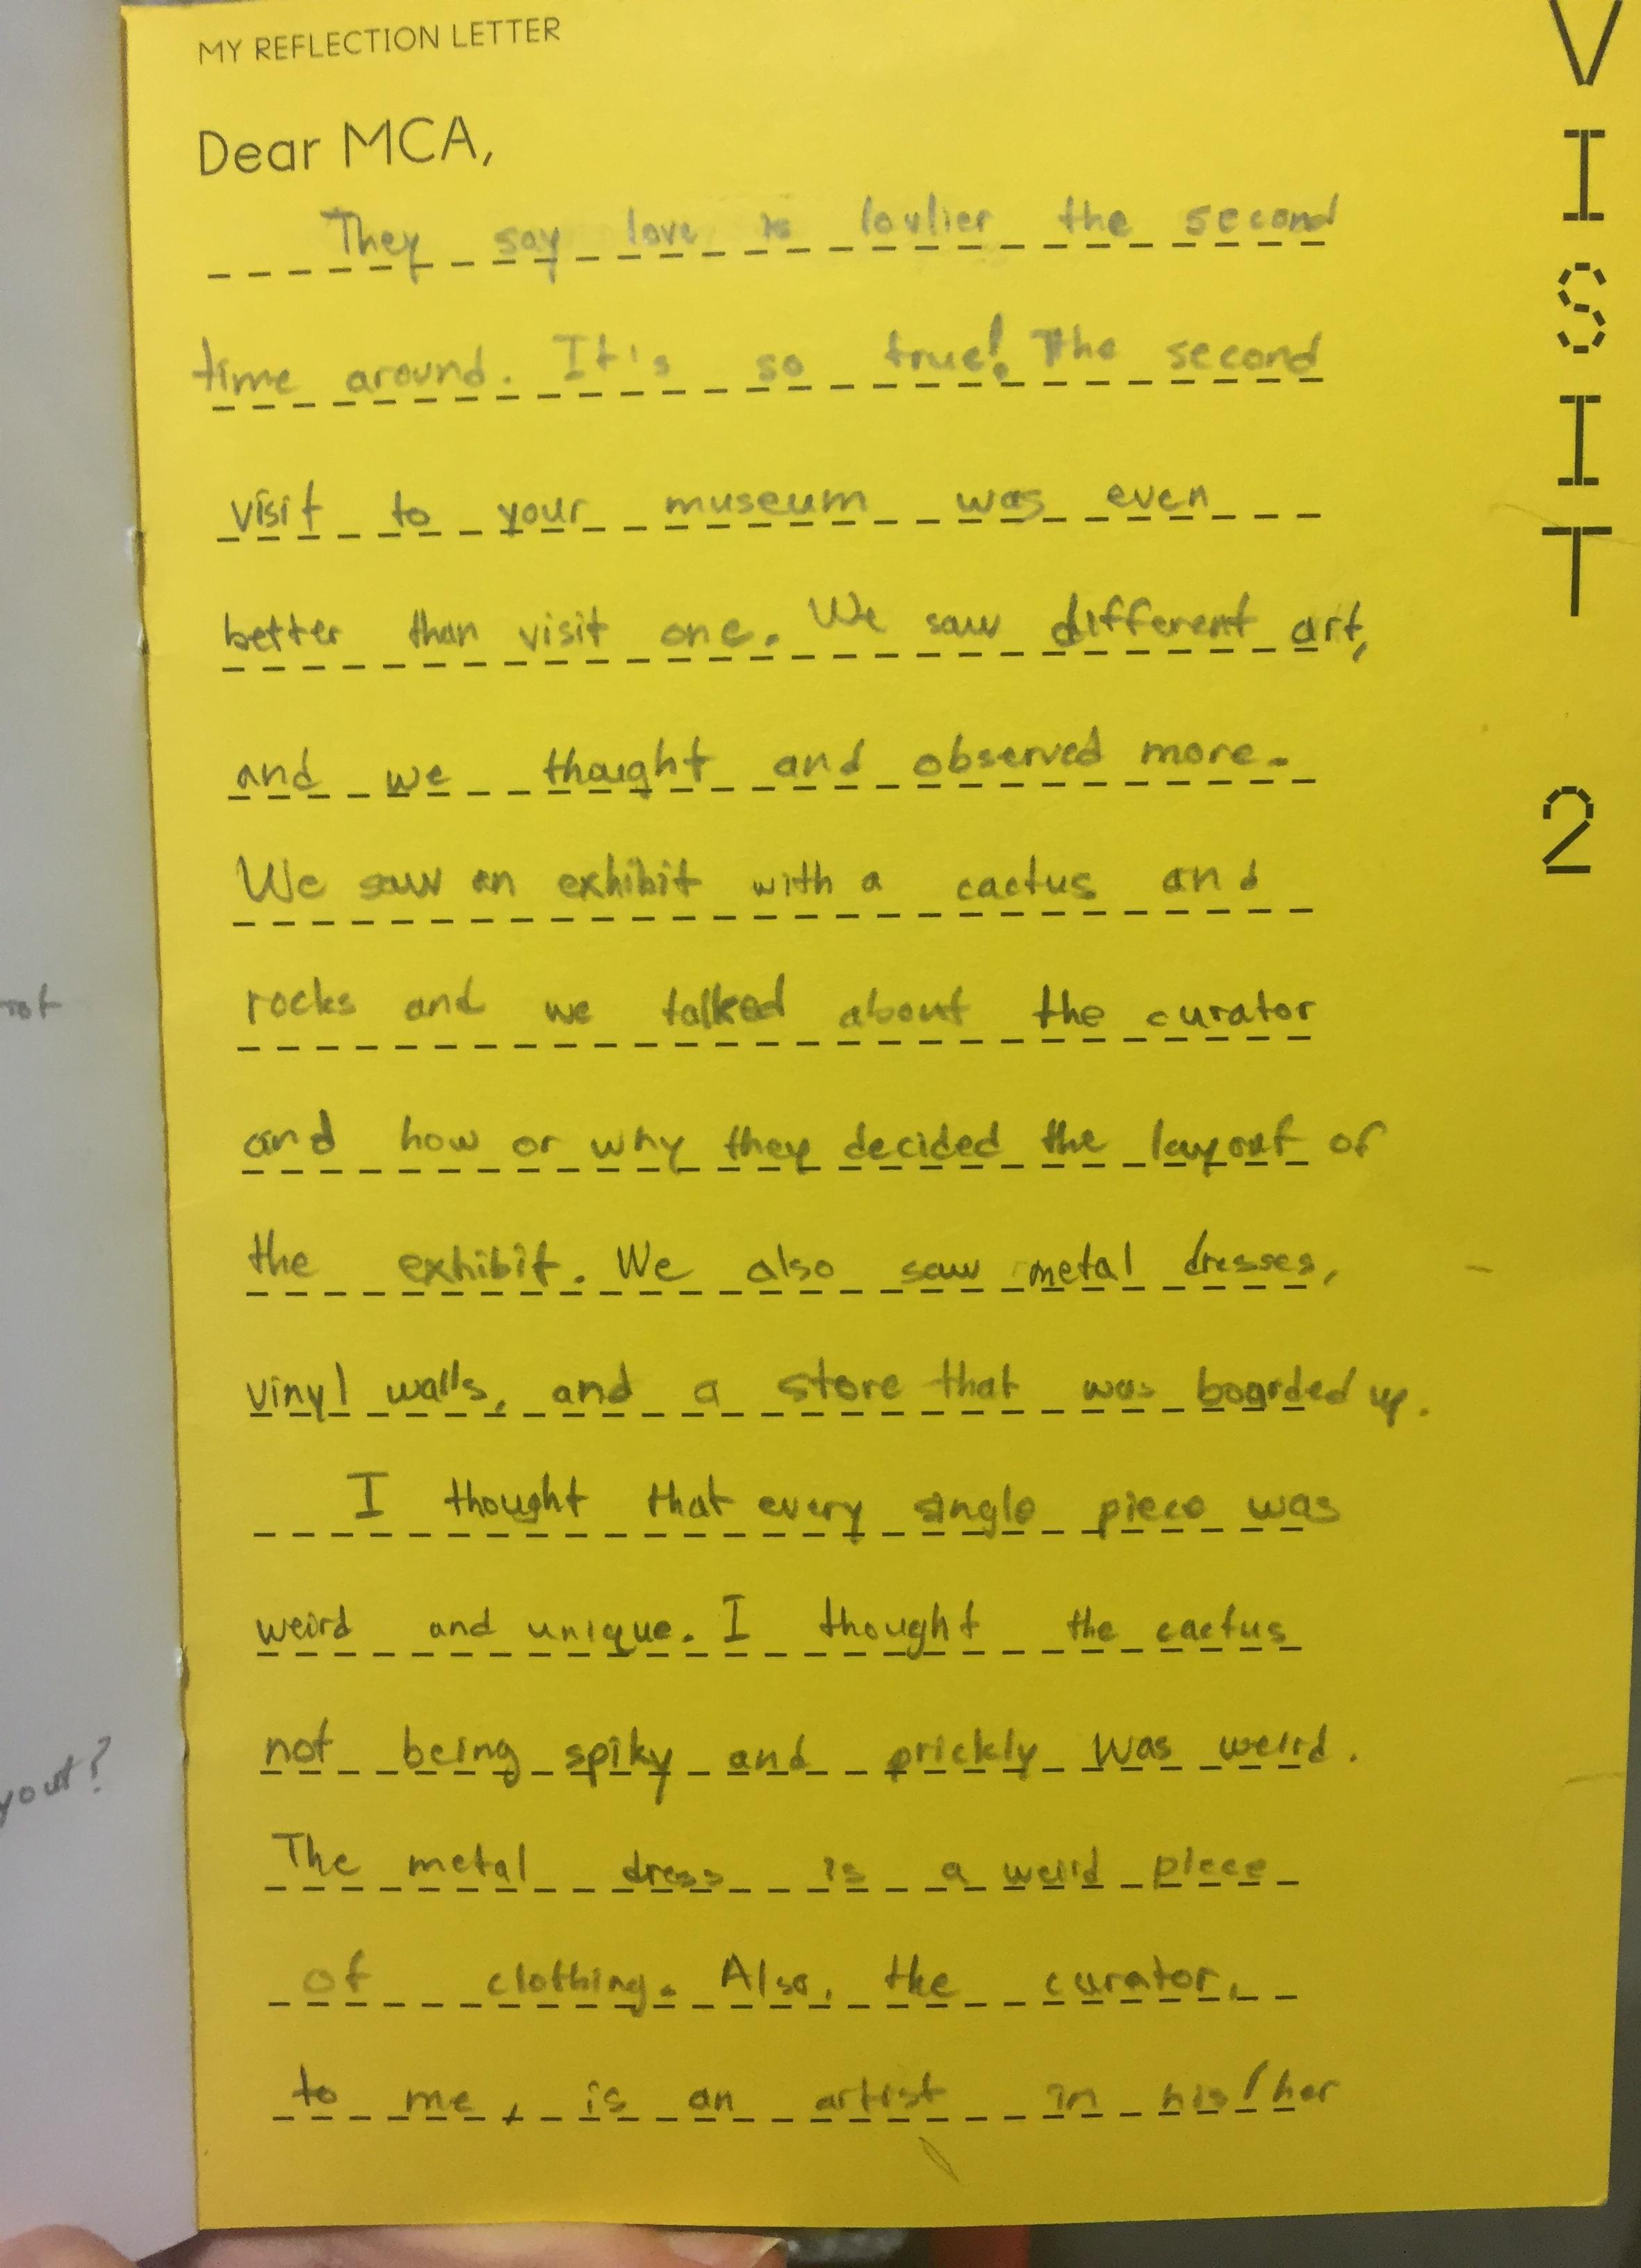 MY REFLECTION LETTER
Dear MCA,
They say love is lovlier the second
time around. It's so true! The second
visit to your museum was even
better than visit one. We saw different art,
and we thought and observed more.
We saw an exhibit with a cactus and
rocks and we talked about the curator
and how or why they decided the layout of
the exhibit. We also saw metal dresses,
vinyl walls, and a store that was boarded up.
I thought that every single piece was
weird and unique. I thought the cactus
not being spiky and prickly was weird.
The metal dress is a weird piece
of clothing. Also, the curator,
to me, is an artist in his/her
VISIT 2
yout?